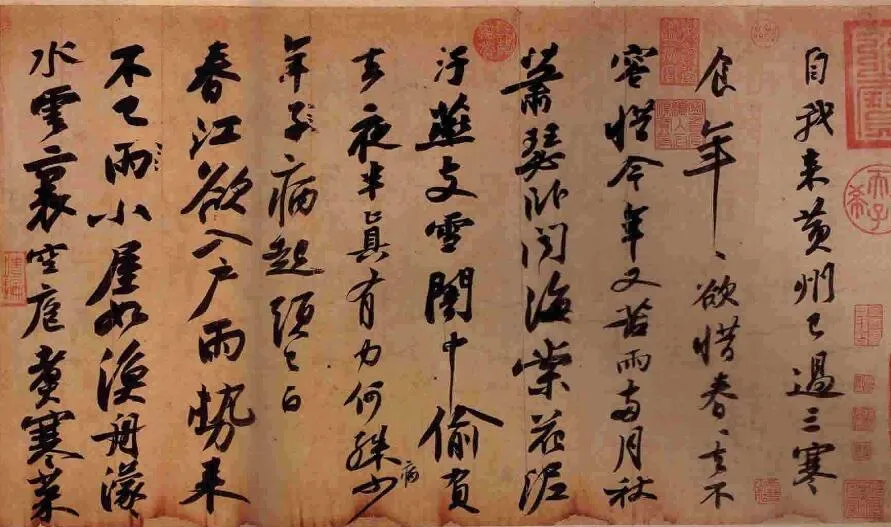 自我来黄州已過三寒
食年、欲惜春、去不
容惜今年又苦雨兩月秋
蕭瑟卧聞海棠花泥
汙燕支雪闇中偷負
去夜半真有力何殊少
病
年子病起頭已白
春江欲入户雨勢来
不已雨小屋如漁舟濛々
水雲裏空庖煮寒菜